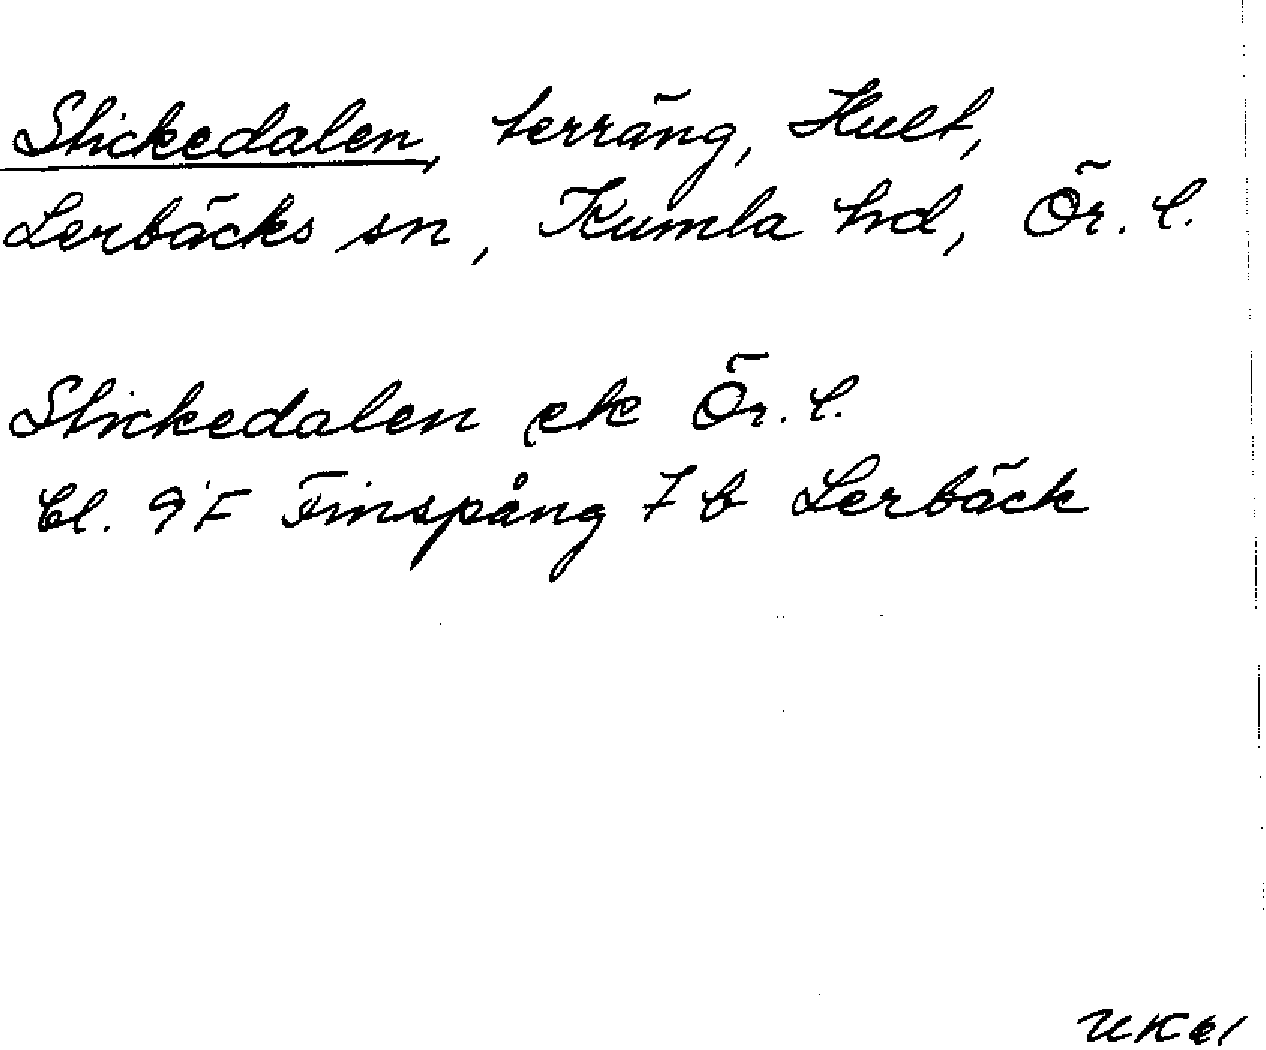 Stickedalen, terräng, Hult,
Lerbäcks sn, Kumla hd, Ör. l.
Stickedalen ek Ör. l.
Bl. 9 F Finspång 7 b Lerbäck